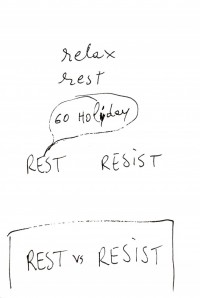 relax
rest
GO HOLiday
REST RESiST
REST vs RESiST